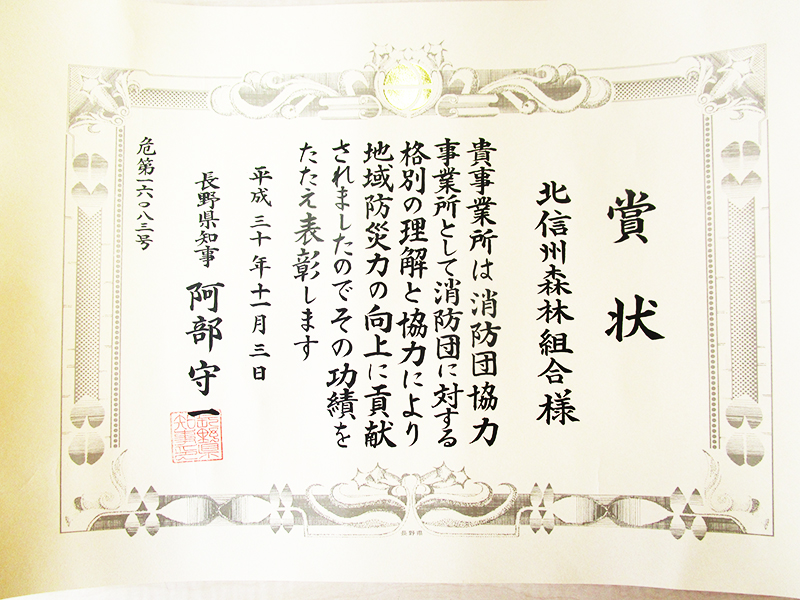 賞状
北信州森林組合様
貴事業所は消防団協力
事業所として消防団に対する
格別の理解と協力により
地域防災力の向上に貢献
されましたのでその功績を
たたえ表彰します
平成三十年十一月三日
長野県知事 阿部守一
危第一六〇八三号
長野県